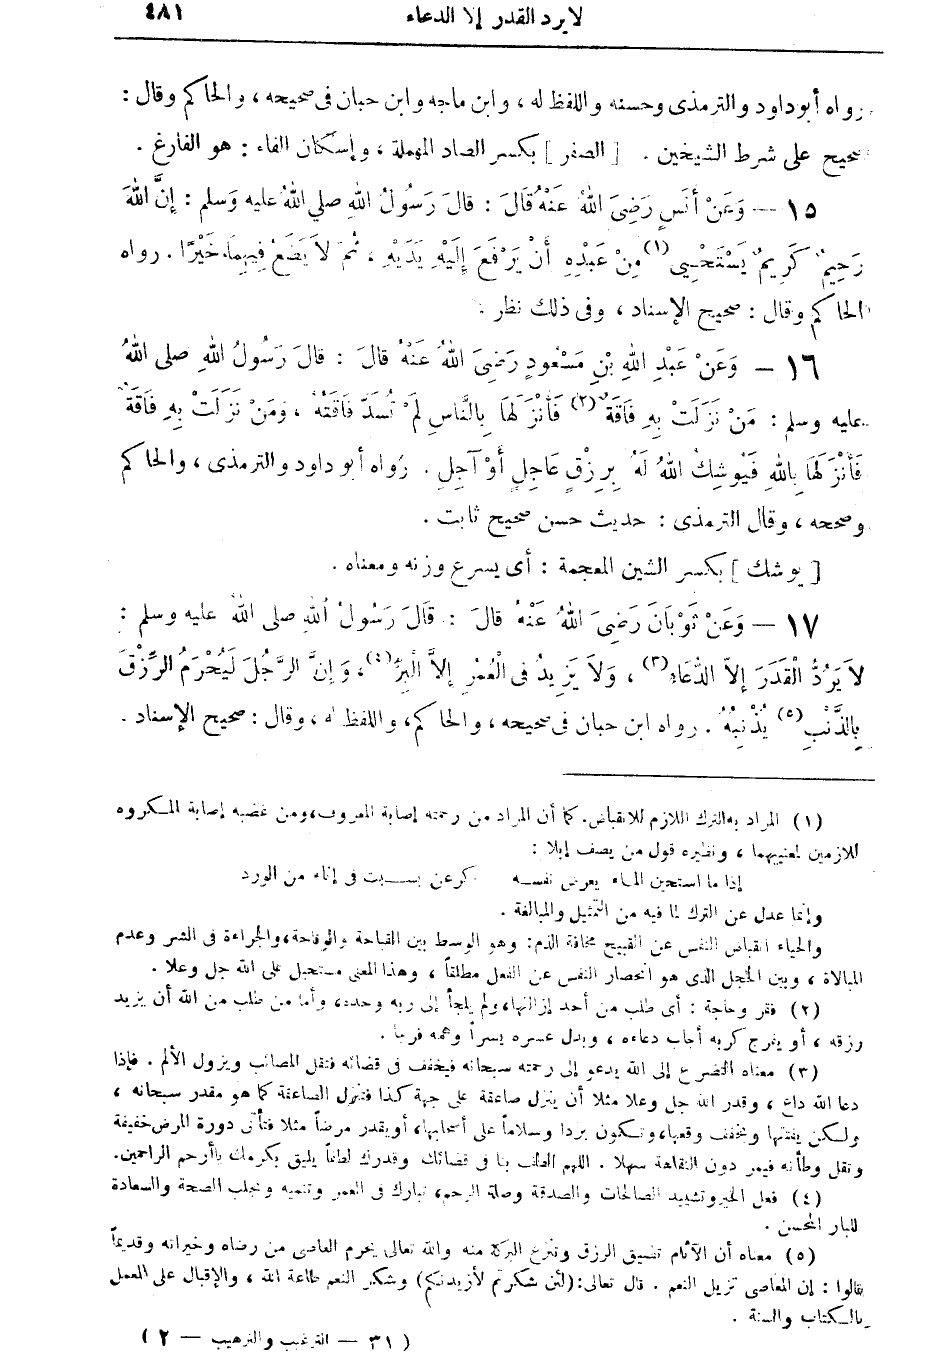 لا يرد القدر إلا الدعاء ٤٨١
رواه أبو داود والترمذى وحسنه واللفظ له ، وابن ماجه وابن حبان فى صحيحه ، والحاكم وقال :
صحيح على شرط الشيخين . [ الصفر ] بكسر الصاد المهملة ، وإسكان الفاء : هو الفارغ .
١٥ — وَعَنْ أَنَسٍ رَضِيَ اللهُ عَنْهُ قَالَ : قالَ رَسُولُ اللهِ صلي اللهُ عليه وَسلم : إِنَّ اللهَ
رَحِيمٌ كَرِيمٌ يَسْتَحْيِى (١) مِنْ عَبْدِهِ أَنْ يَرْفَعَ إِلَيْهِ يَدَيْهِ ، ثُمَّ لاَ يَضَعَ فِيهِمَا خَيْرًا . رواه
الحاكم وقال : صحيح الإسناد ، وفى ذلك نظر .
١٦ — وَعَنْ عَبْدِ اللهِ بْنِ مَسْعُودٍ رَضِيَ اللهُ عَنْهُ قالَ : قالَ رَسُولُ اللهِ صلى اللهُ
عليه وسلم : مَنْ نَزَلَتْ بِهِ فَاقَةٌ (٢) فَأَنْزَلَهَا بِالنَّاسِ لَمْ تُسَدَّ فَاقَتُهُ ، وَمَنْ نَزَلَتْ بِهِ فَاقَةٌ
فَأَنْزَلَهَا بِاللهِ فَيُوشِكُ اللهُ لَهُ بِرِزْقٍ عَاجِلٍ أَوْ آجِلٍ . رَواه أبو داود والترمذى ، والحاكم
وصححه ، وقال الترمذى : حديث حسن صحيح ثابت .
[ يوشك ] بكسر الشين المعجمة : أى يسرع وزنه ومعناه .
١٧ — وَعَنْ ثَوْبَانَ رَضِيَ اللهُ عَنْهُ قالَ : قَالَ رَسُولُ اللهِ صلى اللهُ عليه وسلم :
لاَ يَرُدُّ الْقَدَرَ إِلاَّ الدُّعَاءُ (٣) ، وَلاَ يَزِيدُ فى الْعُمُرِ إِلاَّ الْبِرُّ (٤) ، وَإِنَّ الرَّجُلَ لَيُحْرَمُ الرِّزْقَ
بِالذَّنْبِ (٥) يُذْنِبُهُ . رواه ابن حبان فى صحيحه ، والحاكم ، واللفظ له ، وقال : صحيح الإسناد .
(١) المراد به الترك اللازم للانقباض . كما أن المراد من رحمته إصابة المعروف ، ومن غضبه إصابة المكروه
اللازمين لمعنييهما ، ونظيره قول من يصف إبلا :
إذا ما استحين الماء يعرض نفسه كرعن بسبت فى إناء من الورد
وإنما عدل عن الترك لما فيه من التمثيل والمبالغة .
والحياء انقباض النفس عن القبيح مخافة الذم : وهو الوسط بين القباحة والوقاحة ، والجراءة فى الشر وعدم
المبالاة ، وبين الخجل الذى هو انحصار النفس عن الفعل مطلقاً ، وهذا المعنى مستحيل على الله جل وعلا .
(٢) فقر وحاجة : أى طلب من أحد إزالتها ، ولم يلجأ إلى ربه وحده ، وأما من طلب من الله أن يزيد
رزقه ، أو يفرج كربه أجاب دعاءه ، وبدل عسره يسراً وهمه فرجا .
(٣) معناه التضرع إلى الله يدعو إلى رحمته سبحانه فيخفف فى قضائه فتقل المصائب ويزول الألم . فإذا
دعا الله داع ، وقدر الله جل وعلا مثلا أن ينزل صاعقة على جهة كذا فتنزل الصاعقة كما هو مقدر سبحانه ،
ولكن يفتتها ويخفف وقعها ، وتكون بردا وسلاماً على أصحابها ، أو يقدر مرضاً مثلا فتأتى دورة المرض خفيفة
وتقل وطأته فيمر دون النقاهة سهلا . اللهم الطف بنا فى قضائك وقدرك لطفاً يليق بكرمك يا أرحم الراحمين .
(٤) فعل الخير وتشييد الصالحات والصدقة وصلة الرحم ، تبارك فى العمر وتنميه وتجلب الصحة والسعادة
للبار المحسن .
(٥) معناه أن الآثام تضيق الرزق وتنزع البركة منه والله تعالى يحرم العاصى من رضاه وخيراته وقديماً
قالوا : إن المعاصى تزيل النعم . قال تعالى : (لئن شكرتم لأزيدنكم) وشكر النعم طاعة الله ، والإقبال على العمل
بالكتاب والسنة .
( ٣١ — الترغيب والترهيب — ٢ )